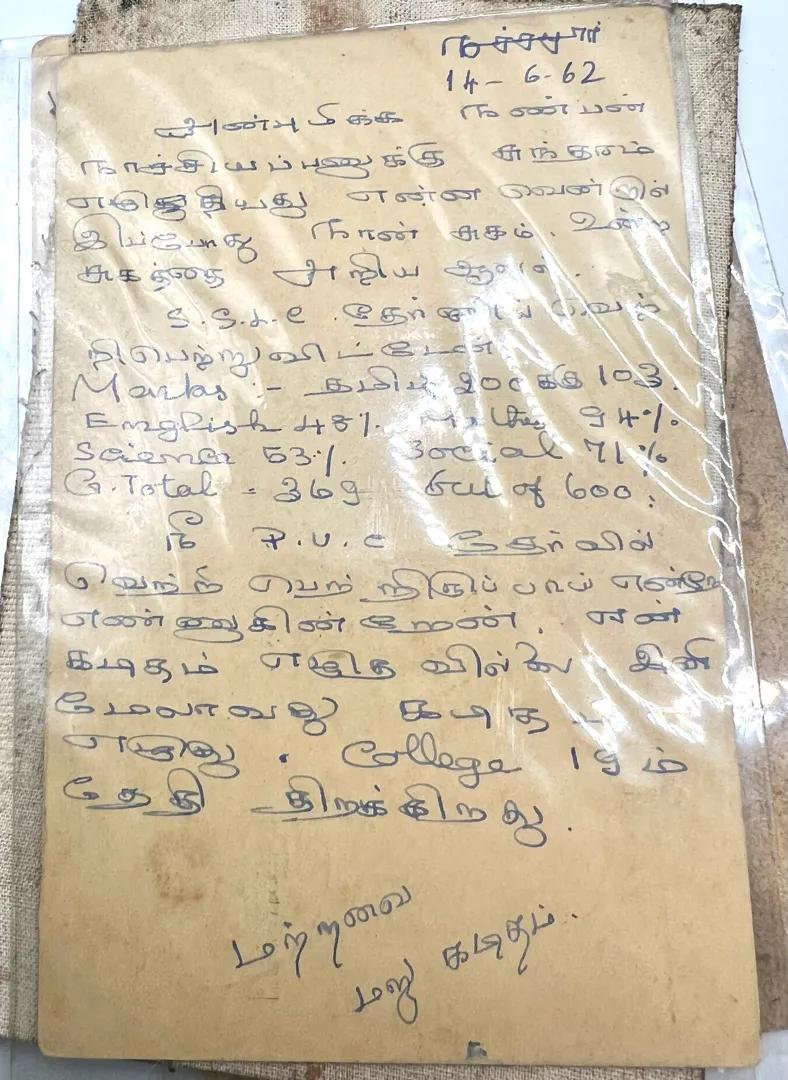 14-6-62
அன்புமிக்க நண்பன்
நாச்சியப்பனுக்கு சுந்தரம்
எழுதியது என்னவென்றால்
இப்போது நான் சுகம். உன்
சுகத்தை அறிய ஆவல்.
S.S.L.C தேர்வில் வெற்
றிபெற்றுவிட்டேன்
Marks :- தமிழ் 200க்கு 103.
English 48% Maths 94%
Science 53% Social 71%
G.Total = 369 out of 600.
நீ P.U.C தேர்வில்
வெற்றி பெற்றிருப்பாய் என்றே
எண்ணுகின்றேன். ஏன்
கடிதம் எழுதவில்லை இனி
மேலாவது கடிதம்
எழுது. College 19ம்
தேதி திறக்கிறது.
மற்றவை
மறு கடிதம்.